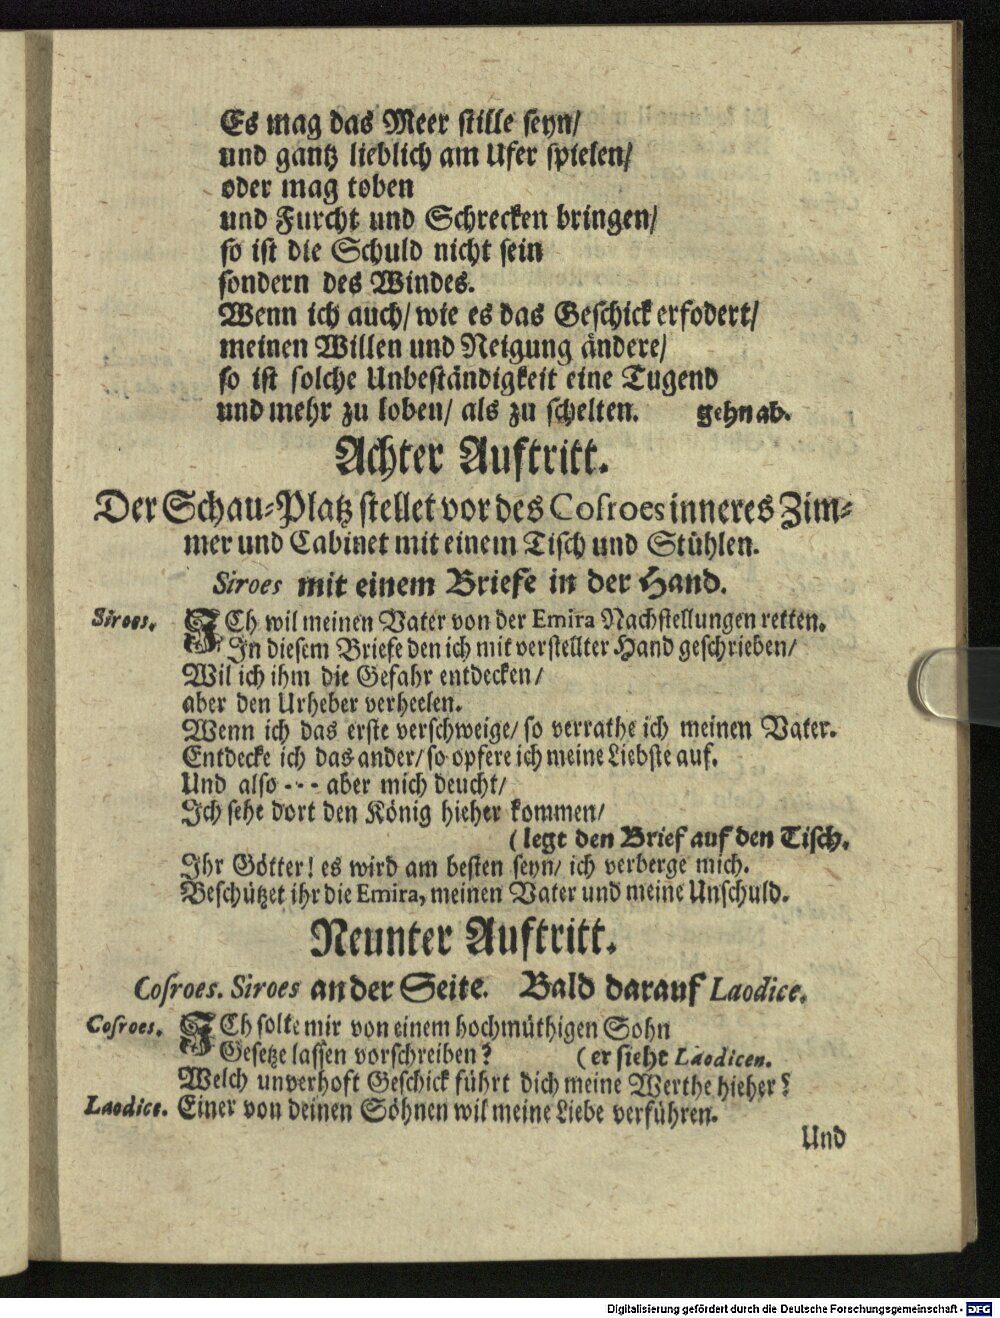 Es mag das Meer stille seyn/
und gantz lieblich am Ufer spielen/
oder mag toben
und Furcht und Schrecken bringen/
so ist die Schuld nicht sein
sondern des Windes.
Wenn ich auch/ wie es das Geschick erfodert/
meinen Willen und Neigung ändere/
so ist solche Unbeständigkeit eine Tugend
und mehr zu loben/ als zu schelten. gehn ab.
Achter Auftritt.
Der Schau-Platz stellet vor des Cosroes inneres Zim-
mer und Cabinet mit einem Tisch und Stühlen.
Siroes mit einem Briefe in der Hand.
Siroes. ICh wil meinen Vater von der Emira Nachstellungen retten.
In diesem Briefe den ich mit verstellter Hand geschrieben/
Wil ich ihm die Gefahr entdecken/
aber den Urheber verheelen.
Wenn ich das erste verschweige/ so verrathe ich meinen Vater.
Entdecke ich das ander/ so opfere ich meine Liebste auf.
Und also - - - aber mich deucht/
Ich sehe dort den König hieher kommen/
(legt den Brief auf den Tisch.
Ihr Götter! es wird am besten seyn/ ich verberge mich.
Beschützet ihr die Emira, meinen Vater und meine Unschuld.
Neunter Auftritt.
Cosroes. Siroes an der Seite. Bald darauf Laodice.
Cosroes. ICh solte mir von einem hochmüthigen Sohn
Gesetze lassen vorschreiben? (er sieht Laodicen.
Welch unverhoft Geschick führt dich meine Werthe hieher?
Laodice. Einer von deinen Söhnen wil meine Liebe verführen.
Und
Digitalisierung gefördert durch die Deutsche Forschungsgemeinschaft - DFG